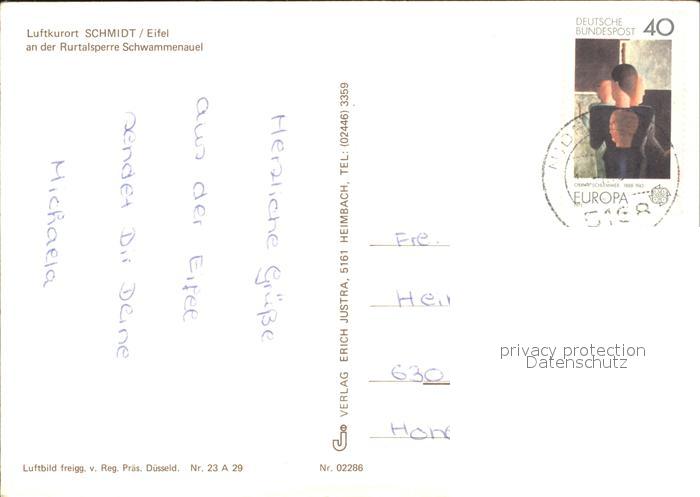 Luftkurort SCHMIDT / Eifel
an der Rurtalsperre Schwammenauel
DEUTSCHE
BUNDESPOST 40
OSKAR SCHLEMMER 1888-1943
EUROPA
Herzliche Grüße
aus der Eifel
sendet Dir Deine
Michaela
VERLAG ERICH JUSTRA, 5161 HEIMBACH, TEL: (02446) 3359
Fre.
Hei
630
privacy protection
Datenschutz
Luftbild freigg. v. Reg. Präs. Düsseld. Nr. 23 A 29
Nr. 02286